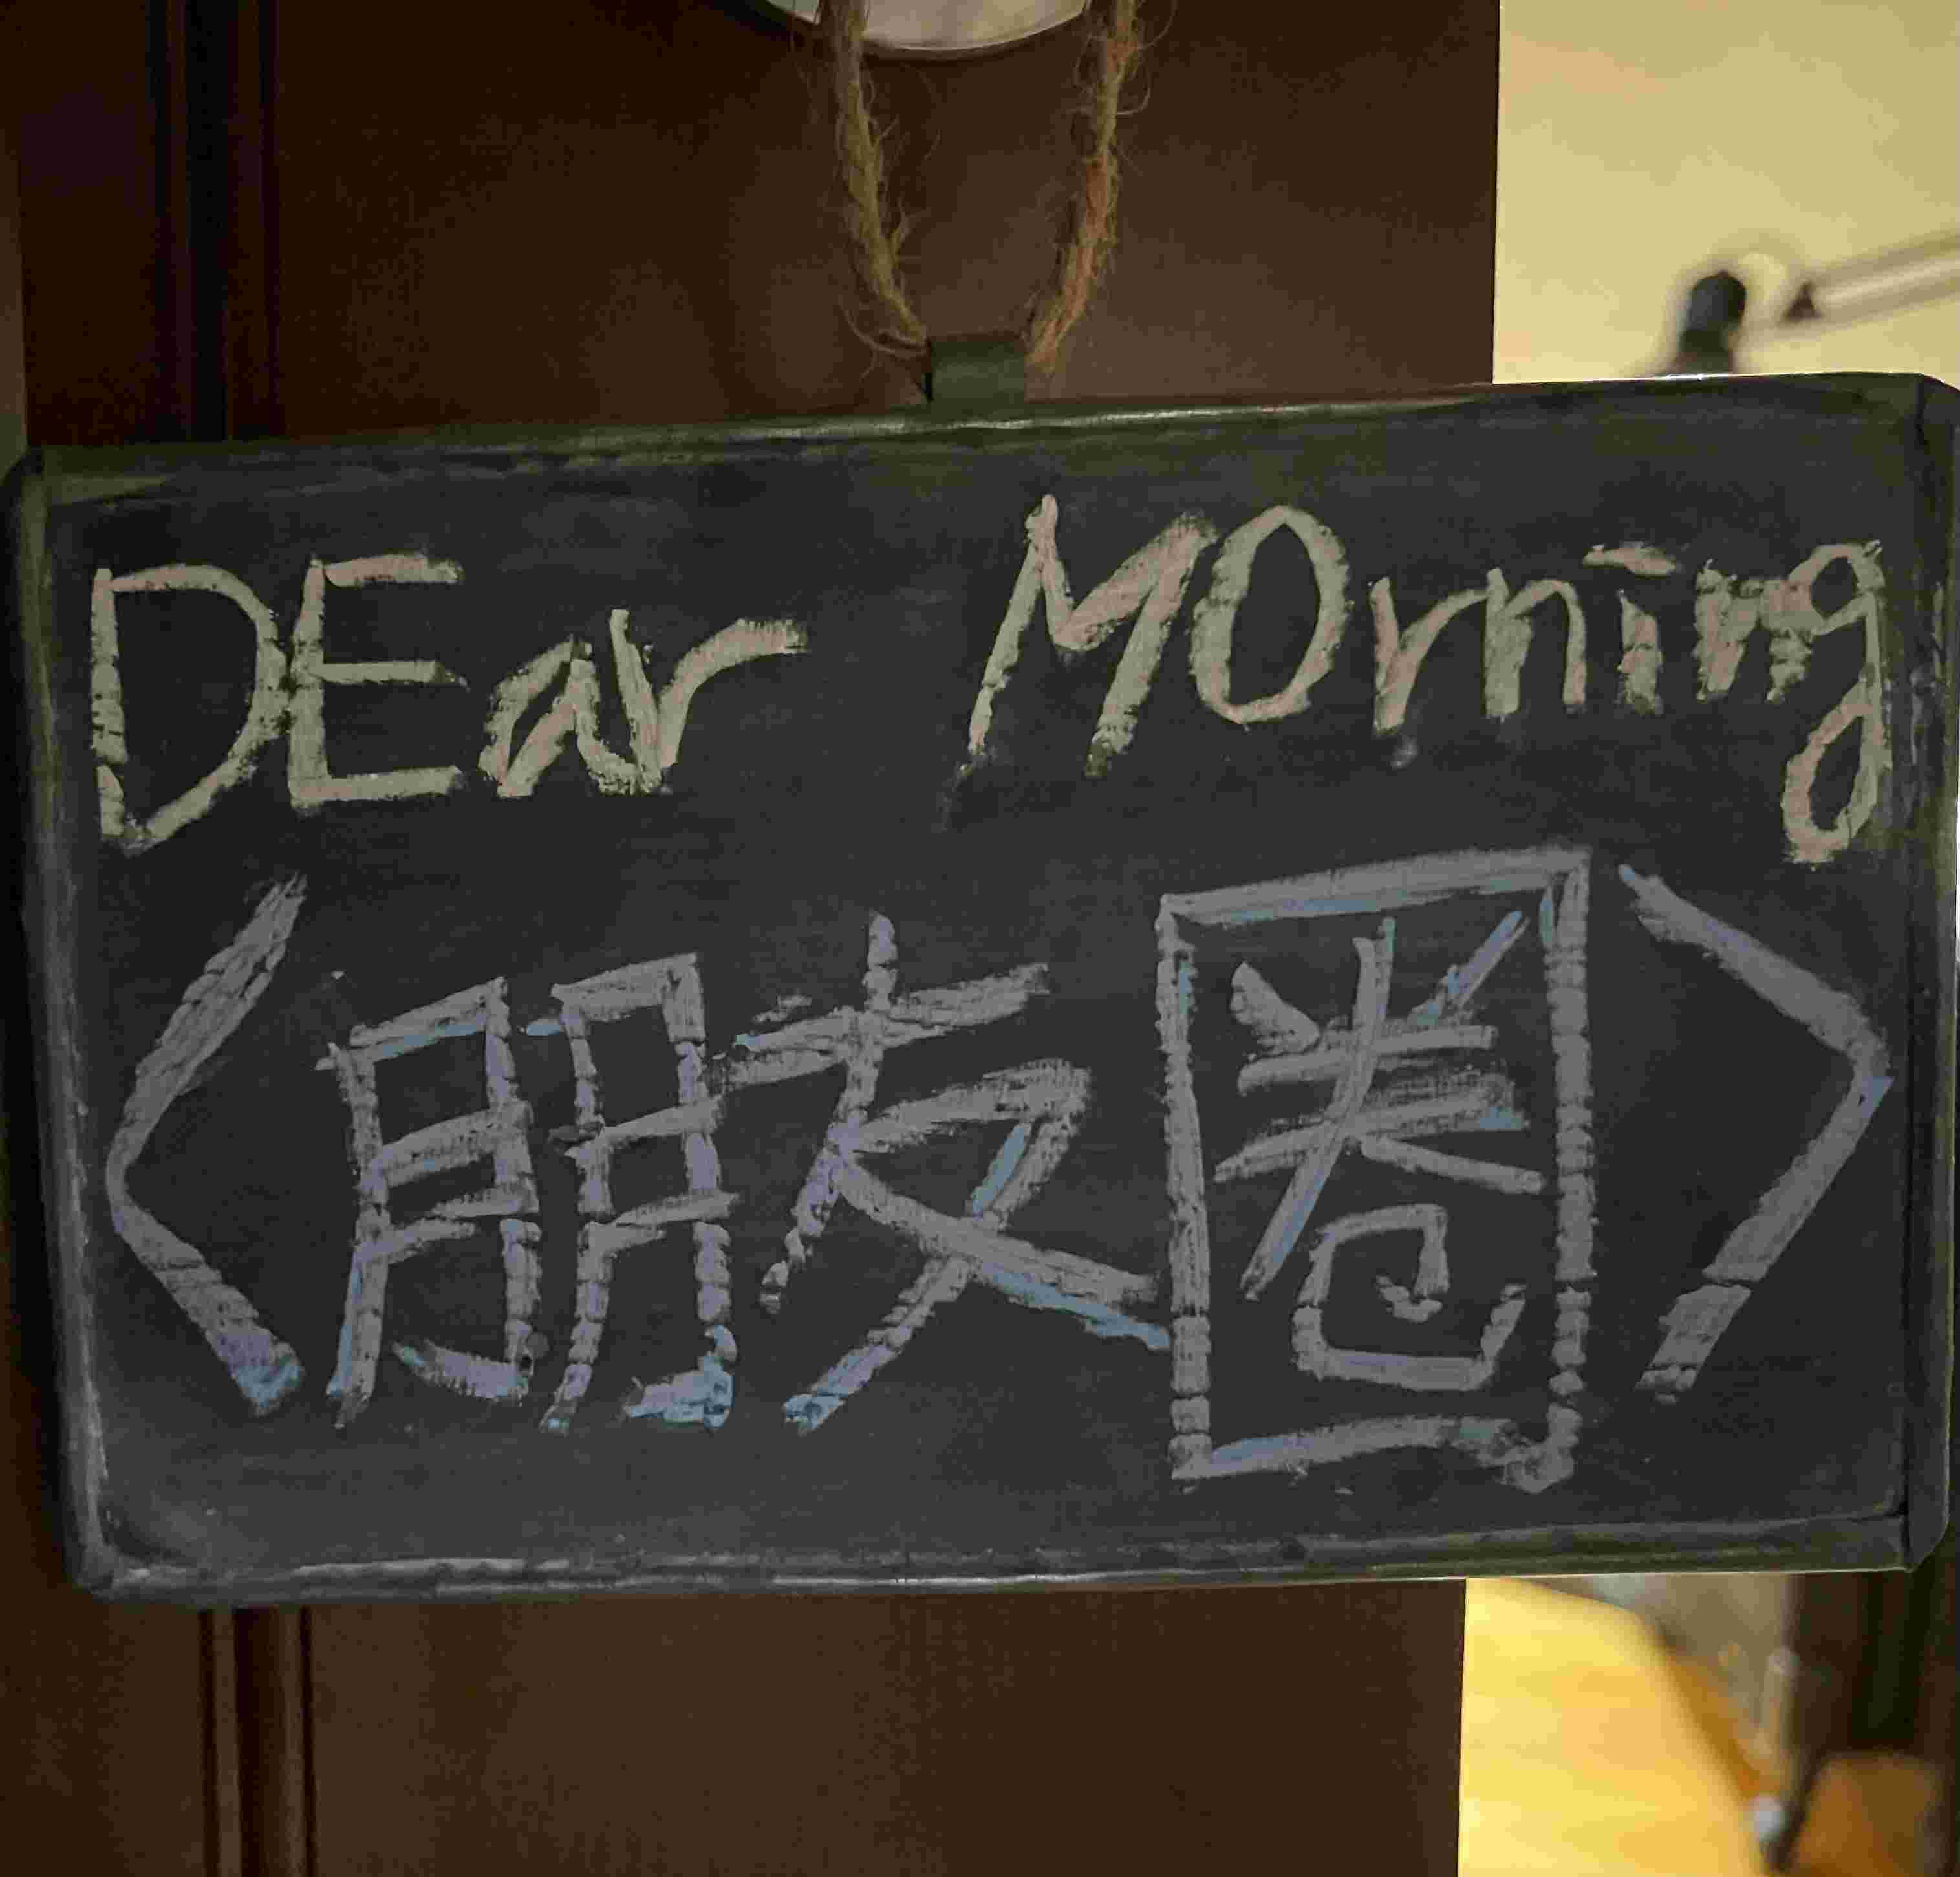 DEar MOrning
<朋友圈>